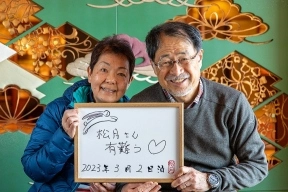 松月さん
有難う♡
2023年3月2日泊